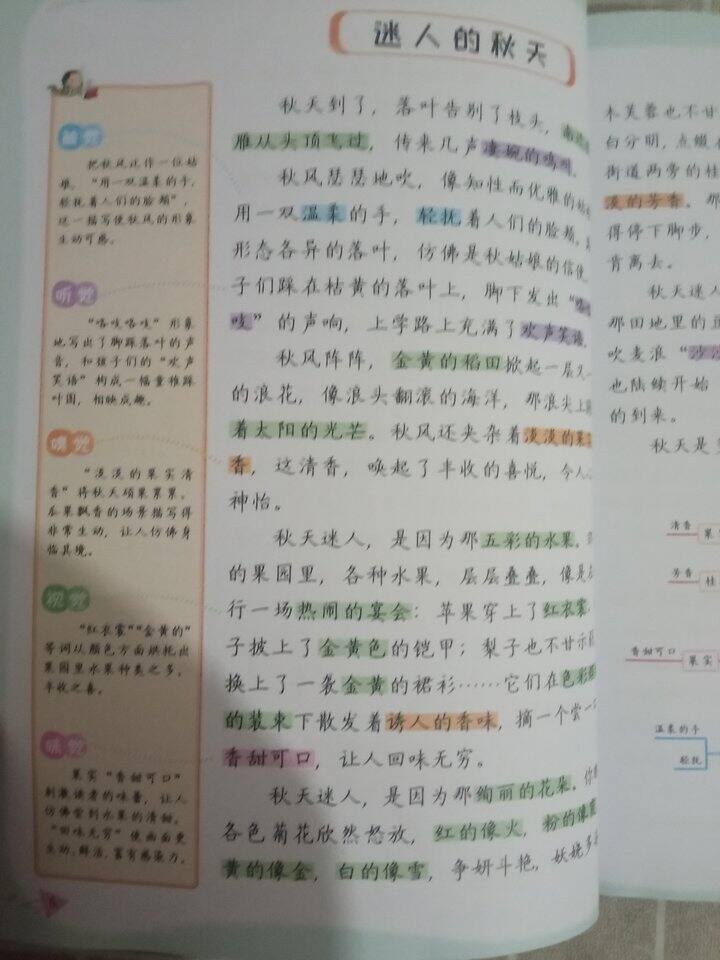 迷人的秋天
触觉
把秋风比作一位姑
娘，“用一双温柔的手，
轻抚着人们的脸颊”，
这一描写使秋风的形象
生动可感。
听觉
“咯吱咯吱”形象
地写出了脚踩落叶的声
音，和孩子们的“欢声
笑语”构成一幅童稚踩
叶图，相映成趣。
嗅觉
“淡淡的果实清
香”将秋天硕果累累、
瓜果飘香的场景描写得
非常生动，让人仿佛身
临其境。
视觉
“红衣裳”“金黄的”
等词从颜色方面烘托出
果园里水果种类之多，
丰收之喜。
味觉
果实“香甜可口”
刺激读者的味蕾，让人
仿佛尝到水果的清甜。
“回味无穷”使画面更
生动、鲜活，富有感染力。
秋天到了，落叶告别了枝头，南
雁从头顶飞过，传来几声凄婉的鸣叫
秋风瑟瑟地吹，像知性而优雅的姑
用一双温柔的手，轻抚着人们的脸颊。
形态各异的落叶，仿佛是秋姑娘的信使
子们踩在枯黄的落叶上，脚下发出“咯
吱”的声响，上学路上充满了欢声笑语
秋风阵阵，金黄的稻田掀起一层又
的浪花，像浪头翻滚的海洋，那浪尖上
着太阳的光芒。秋风还夹杂着淡淡的果
香，这清香，唤起了丰收的喜悦，令人
神怡。
秋天迷人，是因为那五彩的水果。
的果园里，各种水果，层层叠叠，像是
行一场热闹的宴会：苹果穿上了红衣裳
子披上了金黄色的铠甲；梨子也不甘示
换上了一袭金黄的裙衫……它们在色彩
的装束下散发着诱人的香味，摘一个尝一
香甜可口，让人回味无穷。
秋天迷人，是因为那绚丽的花朵。你
各色菊花欣然怒放，红的像火，粉的像霞
黄的像金，白的像雪，争妍斗艳，妖娆多
8
木芙蓉也不甘
白分明，点缀
街道两旁的桂
淡的芳香。那
得停下脚步，
肯离去。
秋天迷人
那田地里的
吹麦浪“沙
也陆续开始
的到来。
秋天是
清香
果
芳香
桂
香甜可口
果实
温柔的手
轻抚